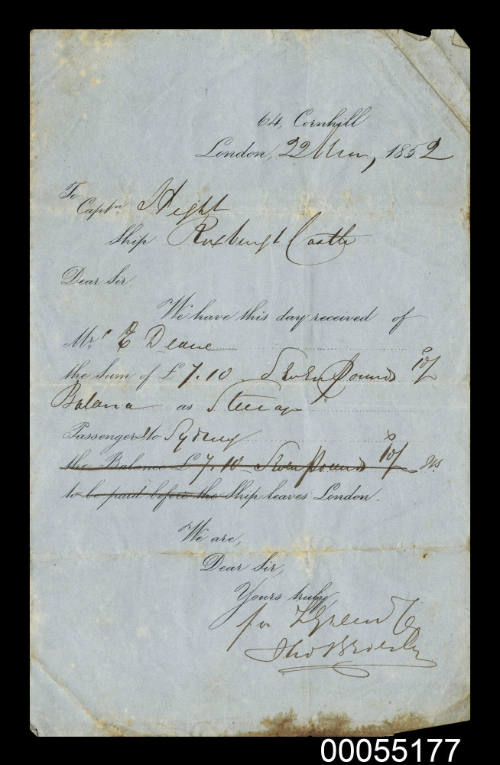 64, Cornhill
London, 22 Nov, 1852
To
Captn Hight
Ship Roxburgh Castle
Dear Sir
We have this day received of
Mr. E Deane
the Sum of £7.10 Seven Pounds 10/
Balance as Steerage
Passenger to Sydney
the Balance £7.10 Seven Pounds 10/
to be paid before the Ship leaves London.
We are,
Dear Sir,
Yours truly
for Green &
00055177